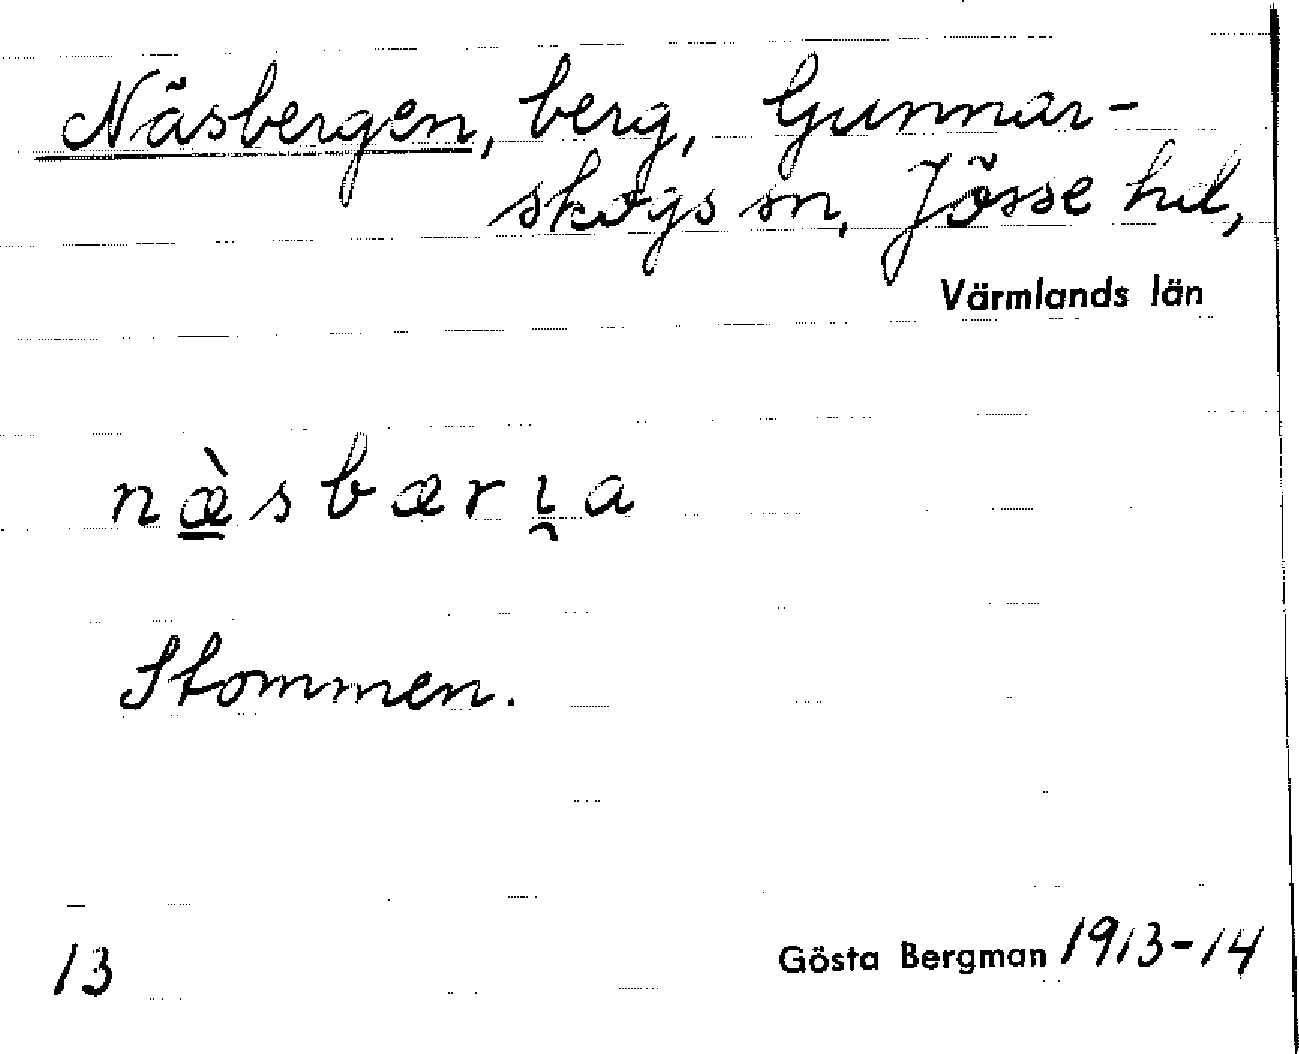 Näsbergen, berg, Gunnar-
skogs sn, Jösse hd,
Värmlands län
næ̠̀sbærı̯a
Stommen.
13
Gösta Bergman 1913-14